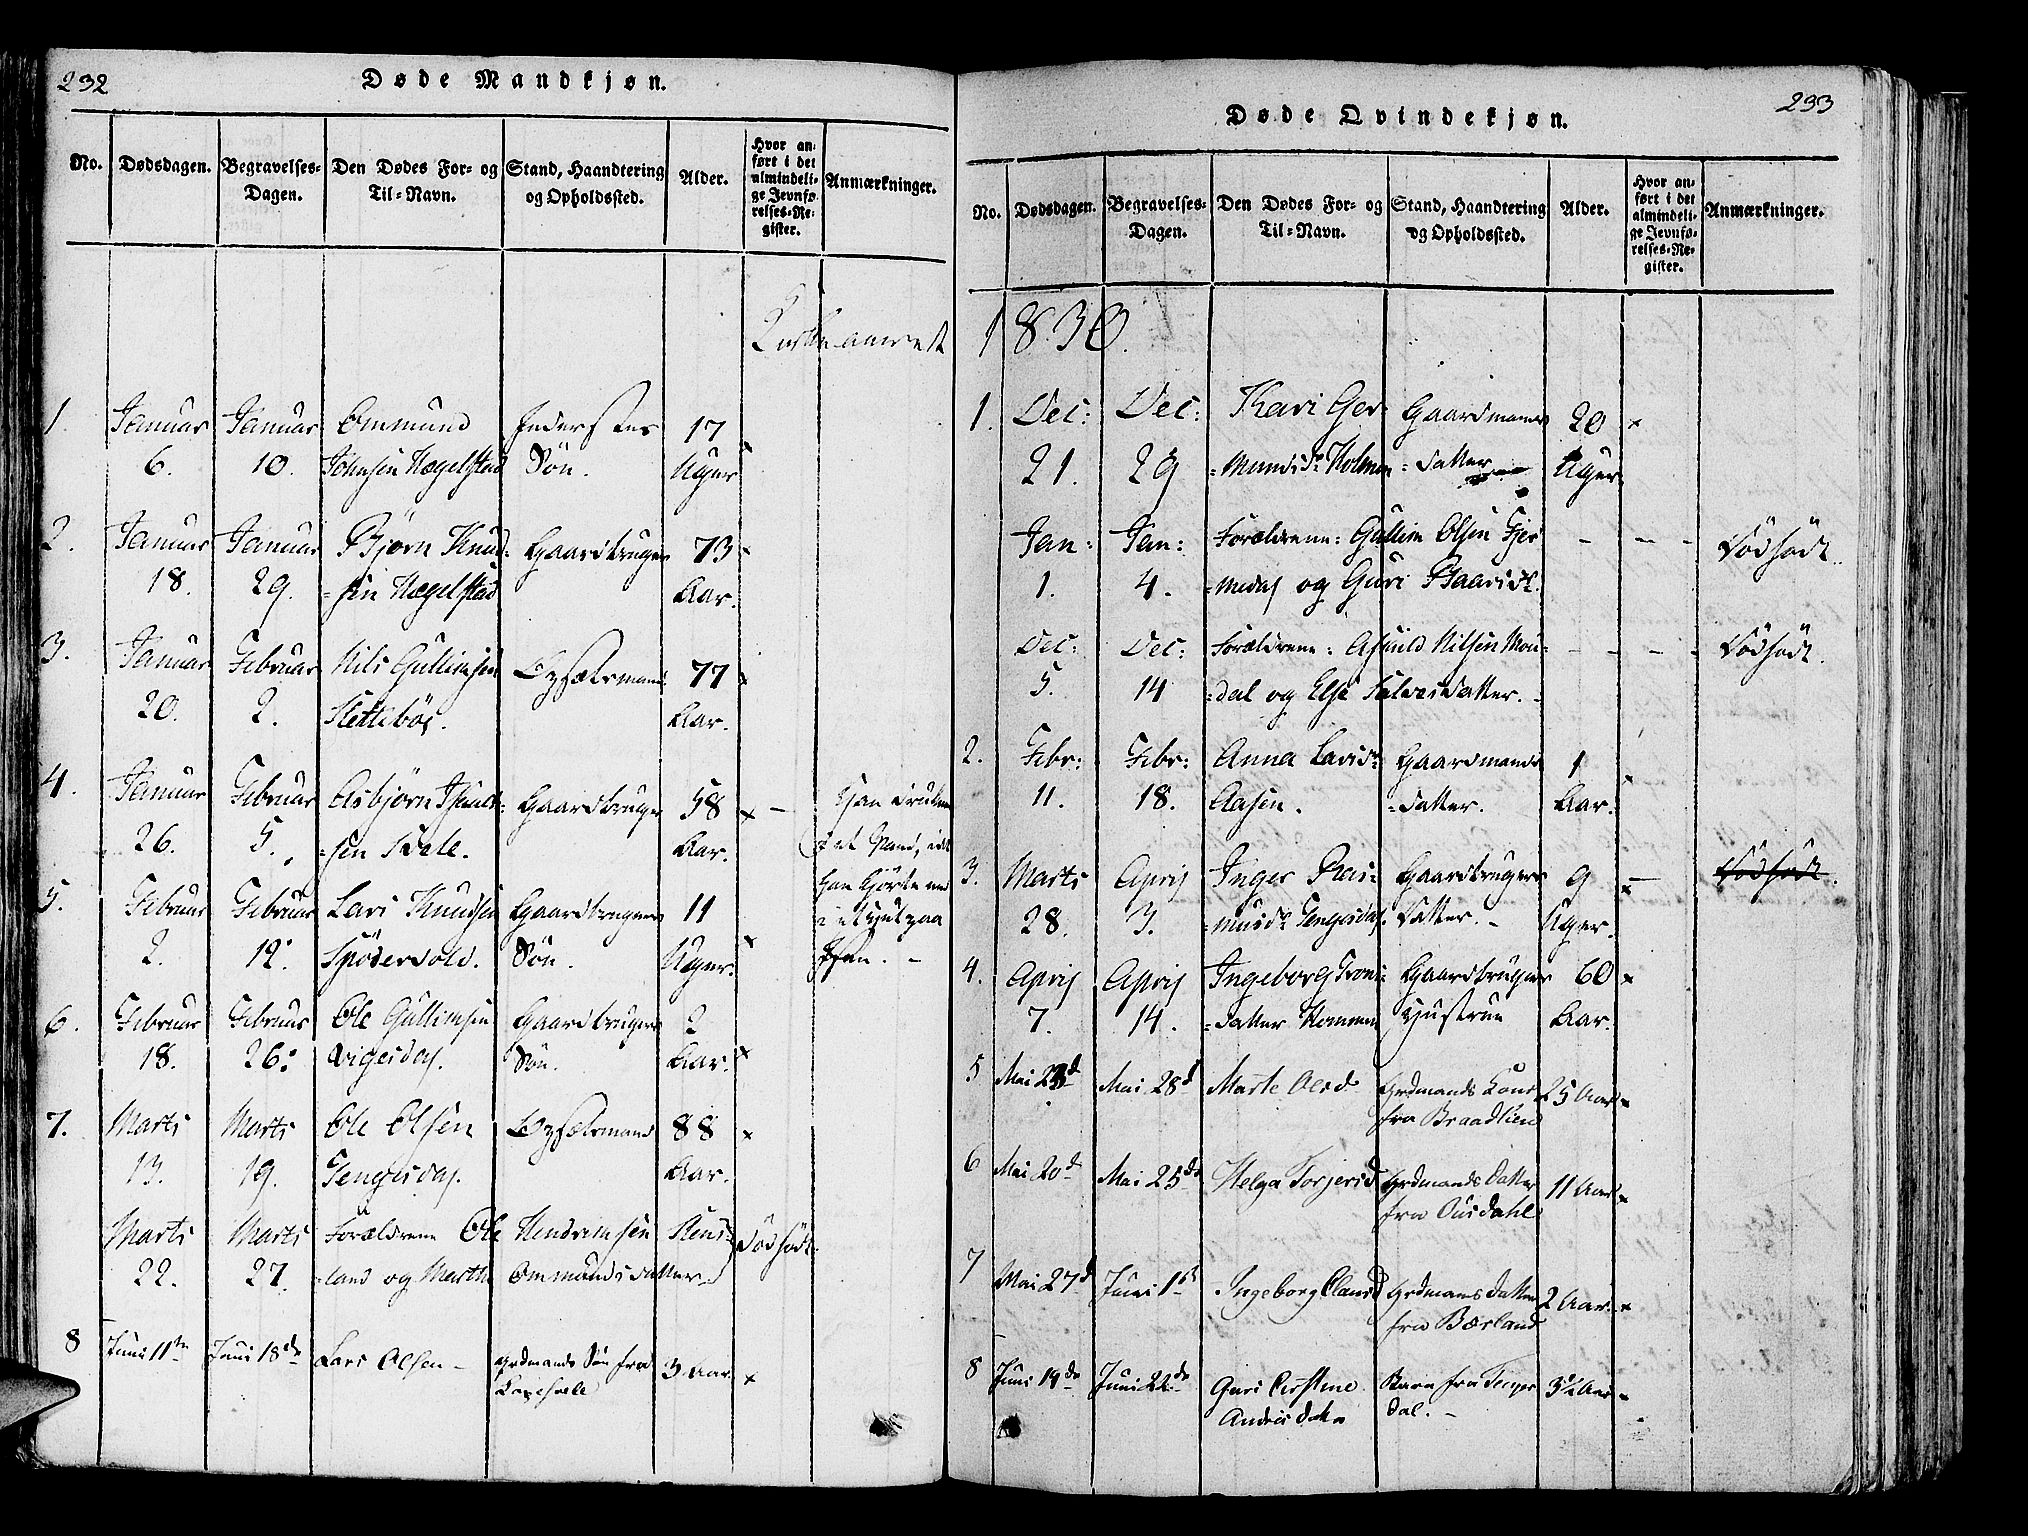 232
Døde Mandkjøn.
No. Dødsdagen. Begravelses-Dagen. Den Dødes For- og Til-Navn. Stand, Haandtering og Opholdssted. Alder. Hvor anført i det almindelige Jevnførelses-Register. Anmærkninger.
1. Januar Januar Ommund Inderstes 17
6. 10. Johnsen Hegelstad Søn. Uger
2. Januar Januar Bjørn Knud- Gaardbruger 73
18. 29. -sen Hegelstad Aar.
3. Januar Februar Nils Gullimsen 77
20. 2. Slettebøe. Aar.
4. Januar Februar Asbjørn Gaardbruger 58 × -
26. 5. -sen Aar.
5. Februar Februar Lars Knudsen Gaardbrugers 11 ×
2. 12. Spødervold. Søn. Uger.
6. Februar Februar Ole Gullimsen Gaardbrugers 2
18. 26. Søn. Aar. ×
7. Marts Marts Ole Olsen 88 ×
13. 19. Tengesdal. Aar.
Marts Marts Forældrene Ole Hendrimsen Rens- Dødfødt.
22. 27. -land og Marthe Ommundsdatter.
8 Juni 11te Juni 18de Lars Olsen - Grdmands Søn fra 3 Aar ×
233
Døde Qvindekjøn.
No. Dødsdagen. Begravelses-Dagen. Den Dødes For- og Til-Navn. Stand, Haandtering og Opholdssted. Alder. Hvor anført i det almindelige Jevnførelses-Register. Anmærkninger.
1830.
1. Dec: Dec: Kari Ger- Gaardmands 20 ×
21. 29 -mundsd. Holmen -datter Uger
Jan: Jan: Forældrene: Gullim Olsen Fjer - - - Dødfødt.
1. 4. -medal og Guri
Dec: Dec: Forældrene: Asuld Nilsen Mou- - - - - Dødfødt.
5. 14 -dal og Else Salvesdatter. -
2. Febr: Febr: Anna Larsd. Gaardmands 1 ×
11. 18. Aasen. -datter. Aar.
3. Marts April Inger Ras- Gaardbrugers 9 × Dødfødt.
28. 3. -musd. Tengesdal. Datter. - Uger.
4. April April Ingeborg Trond- Gaardbrugers 60 ×
7. 14. -datter Hommen Hustrue Aar.
5 Mai 23d Mai 28d Marte Olsd. Grdmands Kone 25 Aar ×
fra Braadlien
6 Mai 20d Mai 25de Helga Torjersd Grdmands Datter 11 Aar ×
fra Ousdahl
7 Mai 27d Juni 1ste Ingeborg Olausd Grdmans Datter 2 Aar ×
fra Bærland
8 Juni 19de Juni 22de Guri Cirstine Barn fra Tenges 3½ Aar ×
Andersdatr dal. -